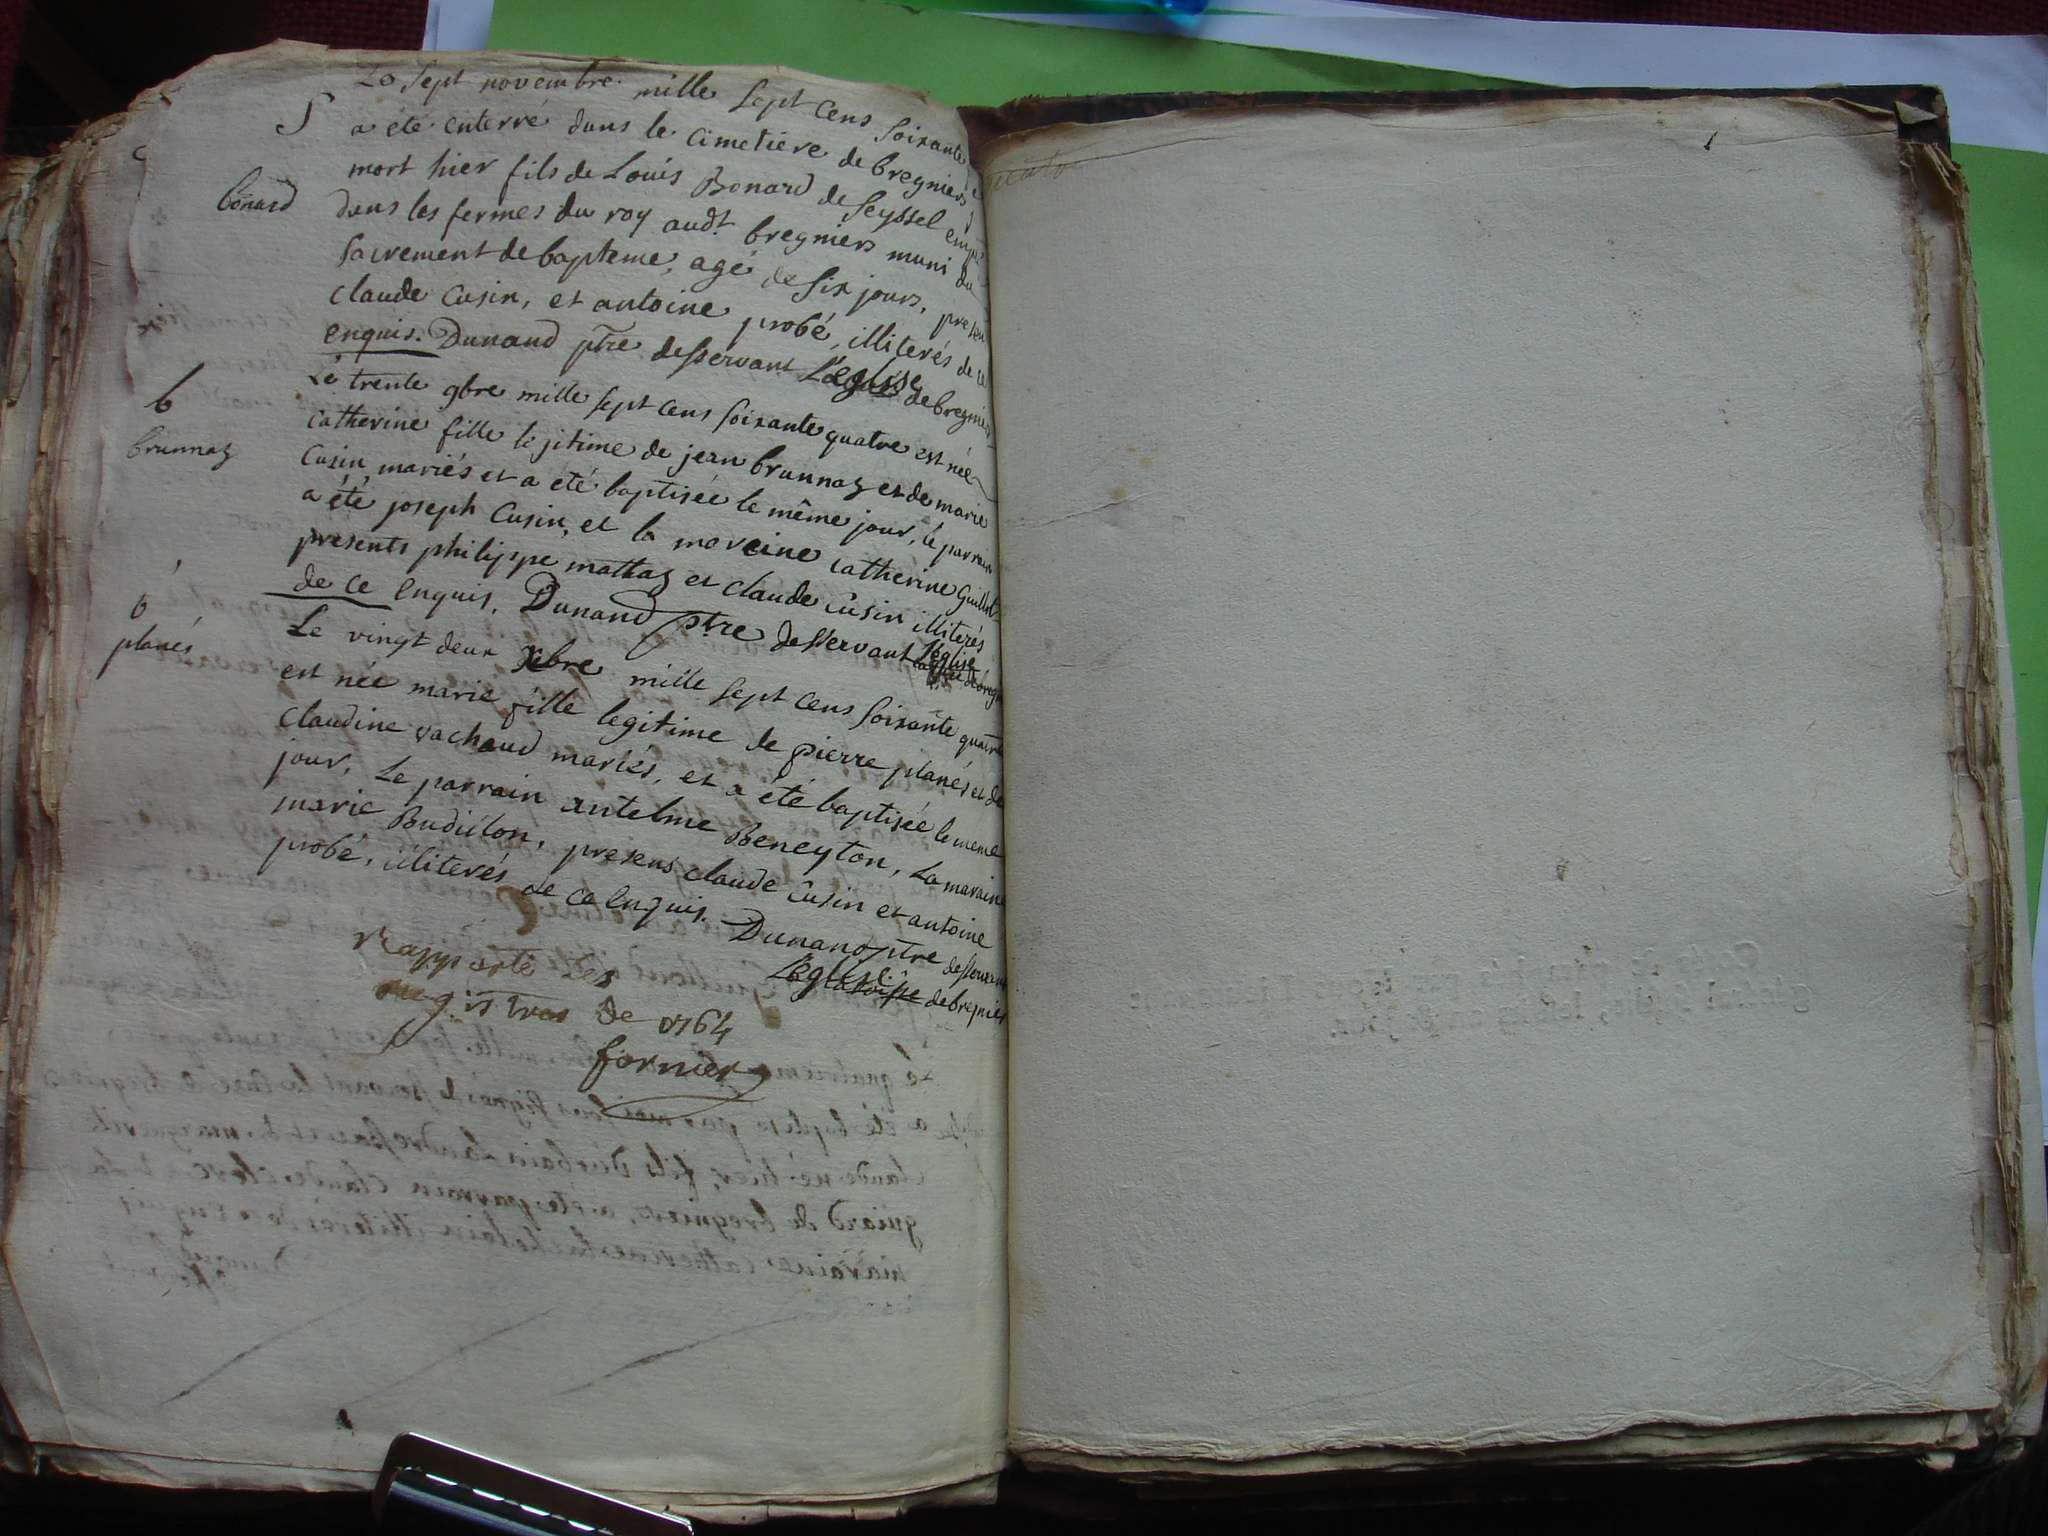 Le sept novembre mille sept cens soixante
S
a été enterré dans le cimetiere de bregniers
mort hier fils de Louis Bonard de Seyssel
bonard
dans les fermes du roy audt. bregniers muni du
sacrement de bapteme, agé de six jours,
claude cusin, et antoine probé, illiterés de ce
enquis. Dunand ptre desservant L'eglise de bregniers
b
Le trente 9bre mille sept cens soixante quatre est née
catherine fille lejitime de jean brunnaz et de marie
brunnaz
Cusin mariés et a été baptisée le même jour, le parrain
a été joseph Cusin, et la mareine catherine
presents philippe mattaz et claude cusin illiterés
de ce enquis. Dunand ptre desservant L'eglise
b
Le vingt deux xbre mille sept cens soixante quatre
planés
est née marie fille legitime de pierre planés et de
claudine vachaud mariés, et a été baptisée le meme
jour. Le parrain antelme Beneyton, La maraine
marie Budillon, presens claude cusin et antoine
probé, illiterés de ce enquis. Dunand ptre desservant
L'eglise de bregniers
Rapporté Les
registres de 1764
fornier